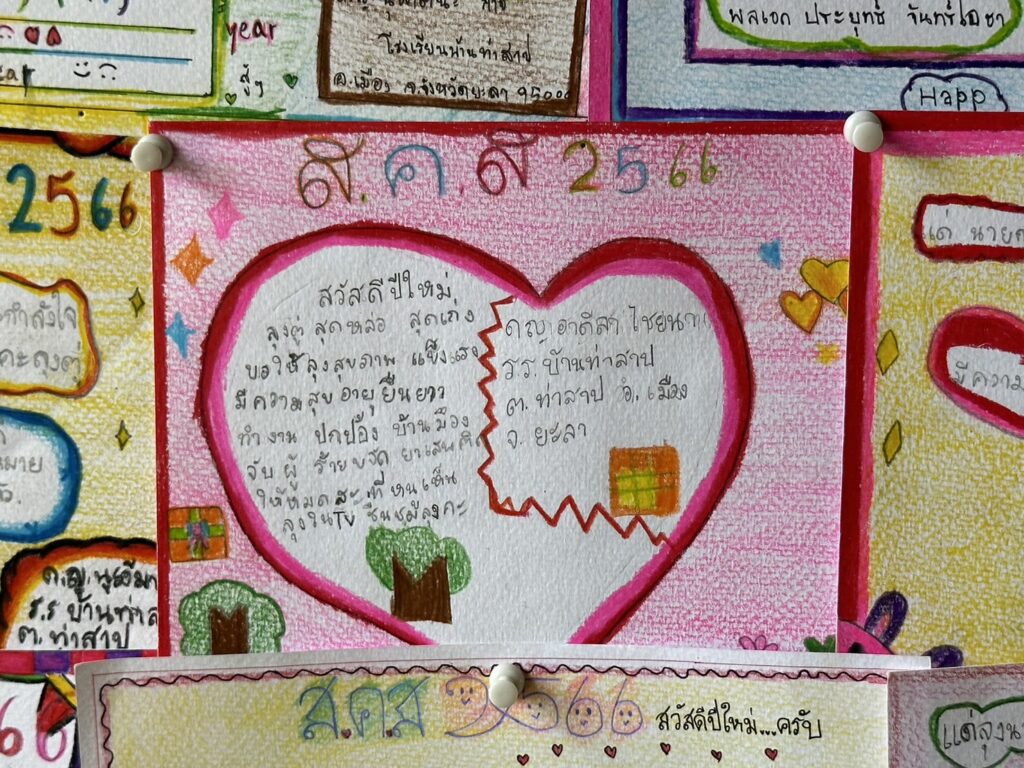 year
โรงเรียนบ้านท่าสาป
อ.เมือง จ.จังหวัดยะลา 95000
พลเอก ประยุทธ์ จันทร์โอชา
Happ
2566
ส.ค.ส 2566
สวัสดีปีใหม่
ลุงตู่ สุดหล่อ สุดเก่ง
ขอให้ ลุงสุขภาพ แข็งแรง
มีความสุข อายุยืนยาว
ทำงาน ปกป้อง บ้านเมือง
จับ ผู้ ร้าย
ให้หมด
ลุงใน TV ชื่นชมลุงคะ
ด ญ อาดีลา ไชยนา
ร.ร. บ้านท่าสาป
ต. ท่าสาป อ. เมือง
จ. ยะลา
กำลังใจ
คะลุงตู่
มาย
ร.ร บ้านท่าส
ต. ท่าสาป
แด่ นาย
มีความ
66
ส.ค.ส 2566
สวัสดีปีใหม่...ครับ
แด่ลุงน